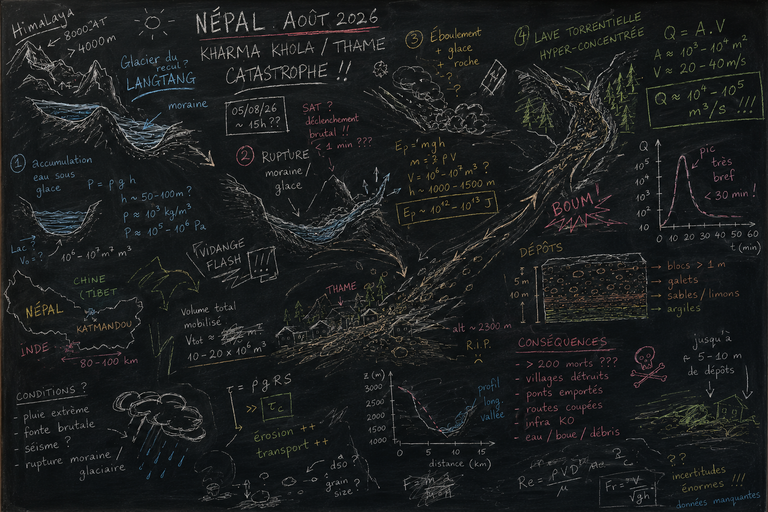 Himalaya
8000AT
> 4000m
NÉPAL . AOÛT 2026
KHARMA KHOLA / THAME
CATASTROPHE !!
Glacier du
recul ?
LANGTANG
moraine
05/08/26
~ 15h ??
SAT ?
déclenchement
brutal !!
< 1 min ???
③ Éboulement
+ glace
+ roche
-?-
?
④ LAVE TORRENTIELLE
HYPER-CONCENTRÉE
Q = A.V
A ≈ 10³ - 10⁴ m²
V ≈ 20-40 m/s
Q ≈ 10⁴ - 10⁵
m³/s !!!
① accumulation
eau sous
glace
P = ρ g h
h ~ 50-100m ?
ρ ≈ 10³ kg/m³
P ≈ 10⁵ - 10⁶ Pa
Lac ?
V₀ = ?
10⁶ - 10⁷ m³
② RUPTURE
moraine /
glace
Eₚ = mgh
V = 10⁶ - 10⁷ m³ ?
h ~ 1000-1500 m
Eₚ ~ 10¹² - 10¹³ J
BOUM !
Q
10⁵
10⁴
10³
10²
10
0 10 20 30 40 50 60
t (min)
pic
très
bref
< 30 min !
VIDANGE
FLASH
!!!
CHINE
(TIBET
NÉPAL
KATMANDOU
INDE
80-100 km
Volume total
mobilisé
Vtot ≈
10-20 × 10⁶ m³
THAME
alt ~ 2300 m
R.I.P.
DÉPÔTS
5 m
10 m
→ blocs > 1 m
→ galets
→ sables / limons
→ argiles
CONSÉQUENCES
- > 200 morts ???
- villages détruits
- ponts emportés
- routes coupées
- infra KO
- eau / boue / débris
jusqu'à
5-10 m
de dépôts
CONDITIONS ?
- pluie extrême
- fonte brutale
- séisme ?
- rupture moraine /
glaciaire
τ = ρ g R S
>> τc
érosion ++
transport ++
d50 ?
grain
size ?
z (m)
3000
2500
2000
1500
1000
0 5 10 15
distance (km)
profil
long.
vallée
Re = ρVD / μ
Fr = V / √gh
? ?
incertitudes
énormes !!!
données manquantes